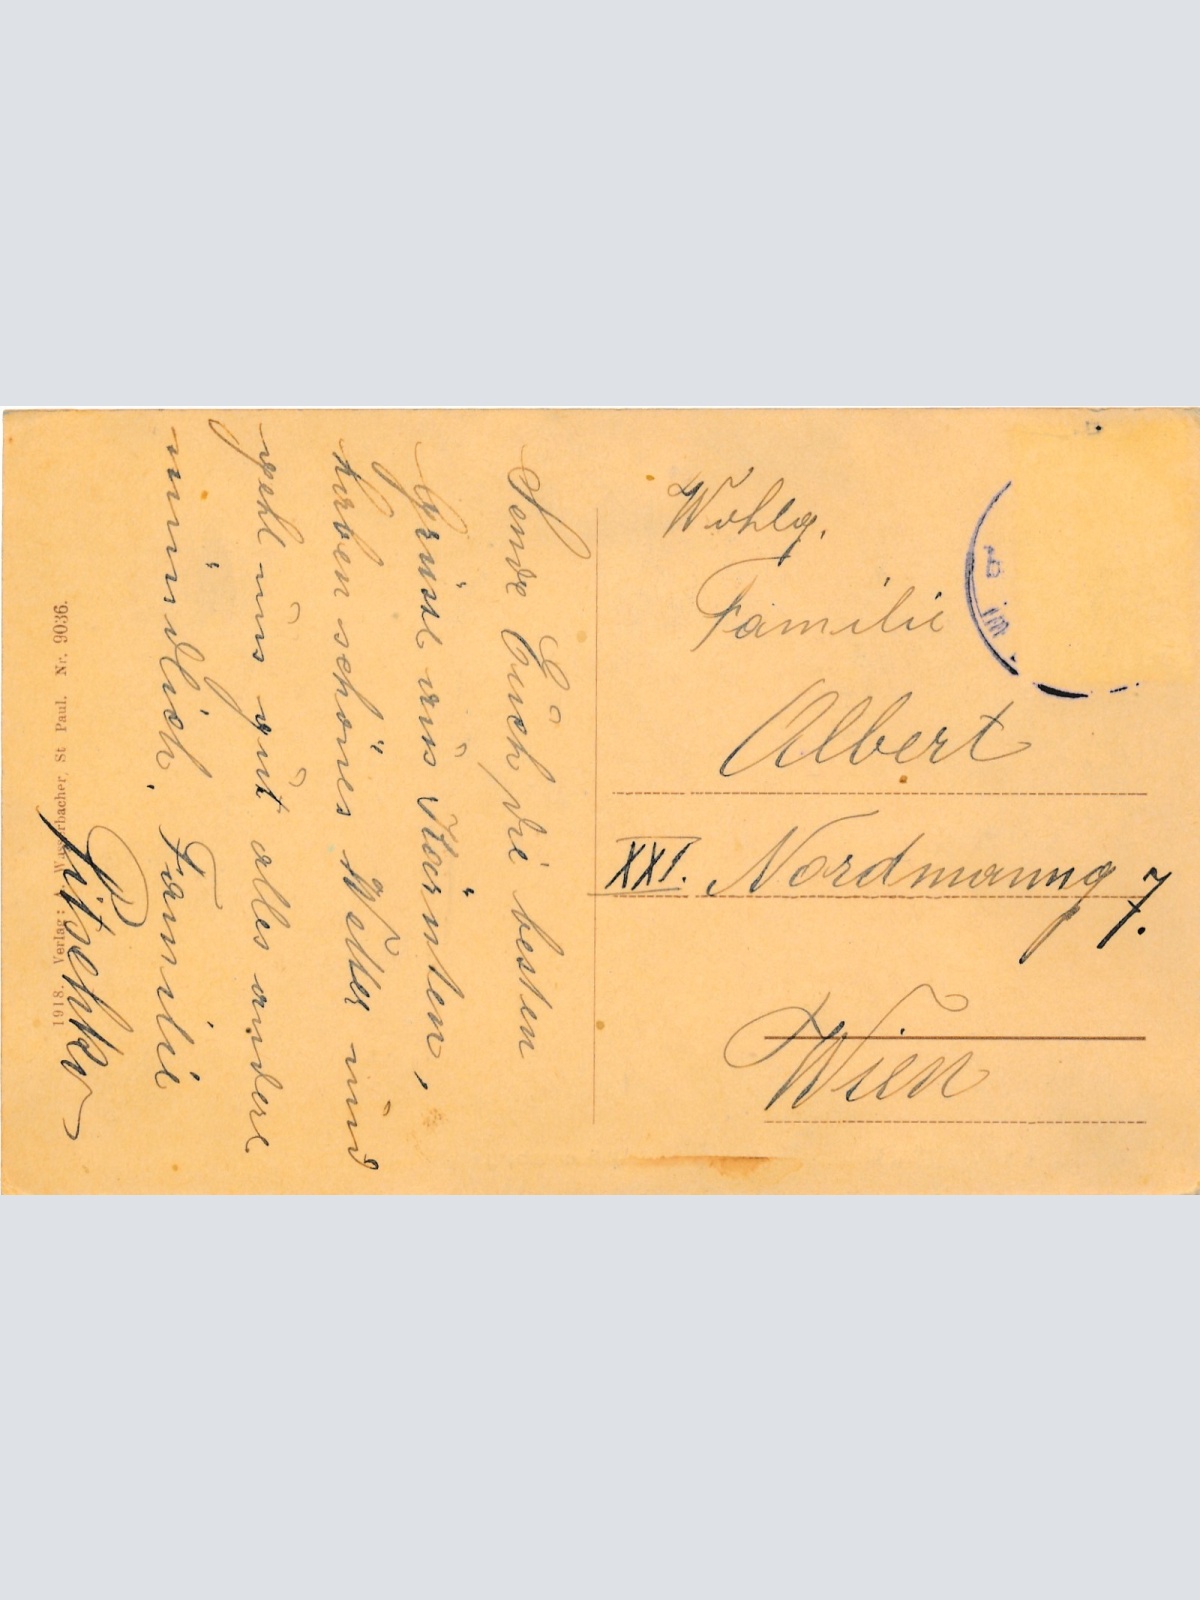 Sende Euch die besten
Grüsse aus Kärnten,
haben schönes Wetter und
geht uns gut alles andere
mündlich. Familie
Pitschko
1918. Verlag: Wasserbacher, St Paul. Nr. 9036.
Wohlg.
Familie
Albert
XXI. Nordmanng 7.
Wien